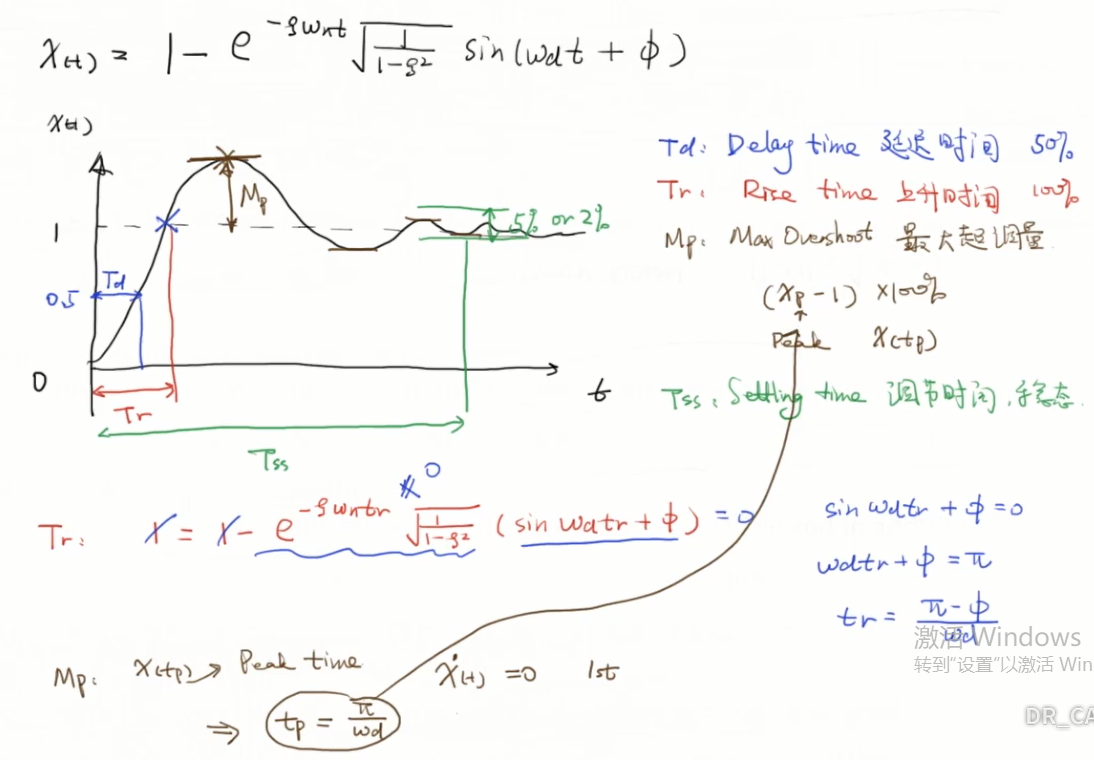 x(t) = 1 - e^{-ζwnt} √(1/(1-ζ²)) sin(wdt + φ)
x(t)
Mp
1
5% or 2%
Td
0.5
0
t
Tr
Tss
Td: Delay time 延迟时间 50%
Tr: Rise time 上升时间 100%
Mp: Max Overshoot 最大超调量
(xp - 1) × 100%
Peak x(tp)
Tss: Settling time 调节时间
Tr: 1 = 1 - e^{-ζwntr} √(1/(1-ζ²)) (sin wdtr + φ) = 0
≠ 0
sin wdtr + φ = 0
wdtr + φ = π
tr = (π - φ)/wd
Mp: x(tp) → Peak time ẋ(t) = 0 1st
⇒ tp = π/wd
激活 Windows
转到"设置"以激活 Win
DR_CA